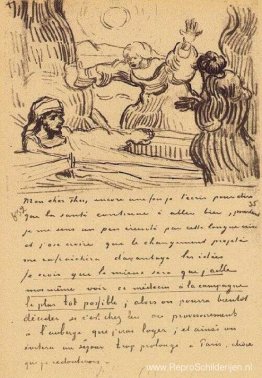 Mon cher Theo, encore une fois je t'écris pour dire
que la santé continue à aller bien, pourtant
je me sens un peu éreinté par cette longue crise
et j'ose croire que le changement projeté
me rafraichira davantage les idées
Je crois que le mieux sera que j'aille
moi même voir ce médecin à la campagne
le plus tôt possible, alors on pourra bientôt
décider si c'est chez lui ou provisoirement
à l'auberge que j'irai loger, et ainsi on
évitera un séjour trop prolongé à Paris, chose
que je redouterais.
www.ReproSchilderijen.nl